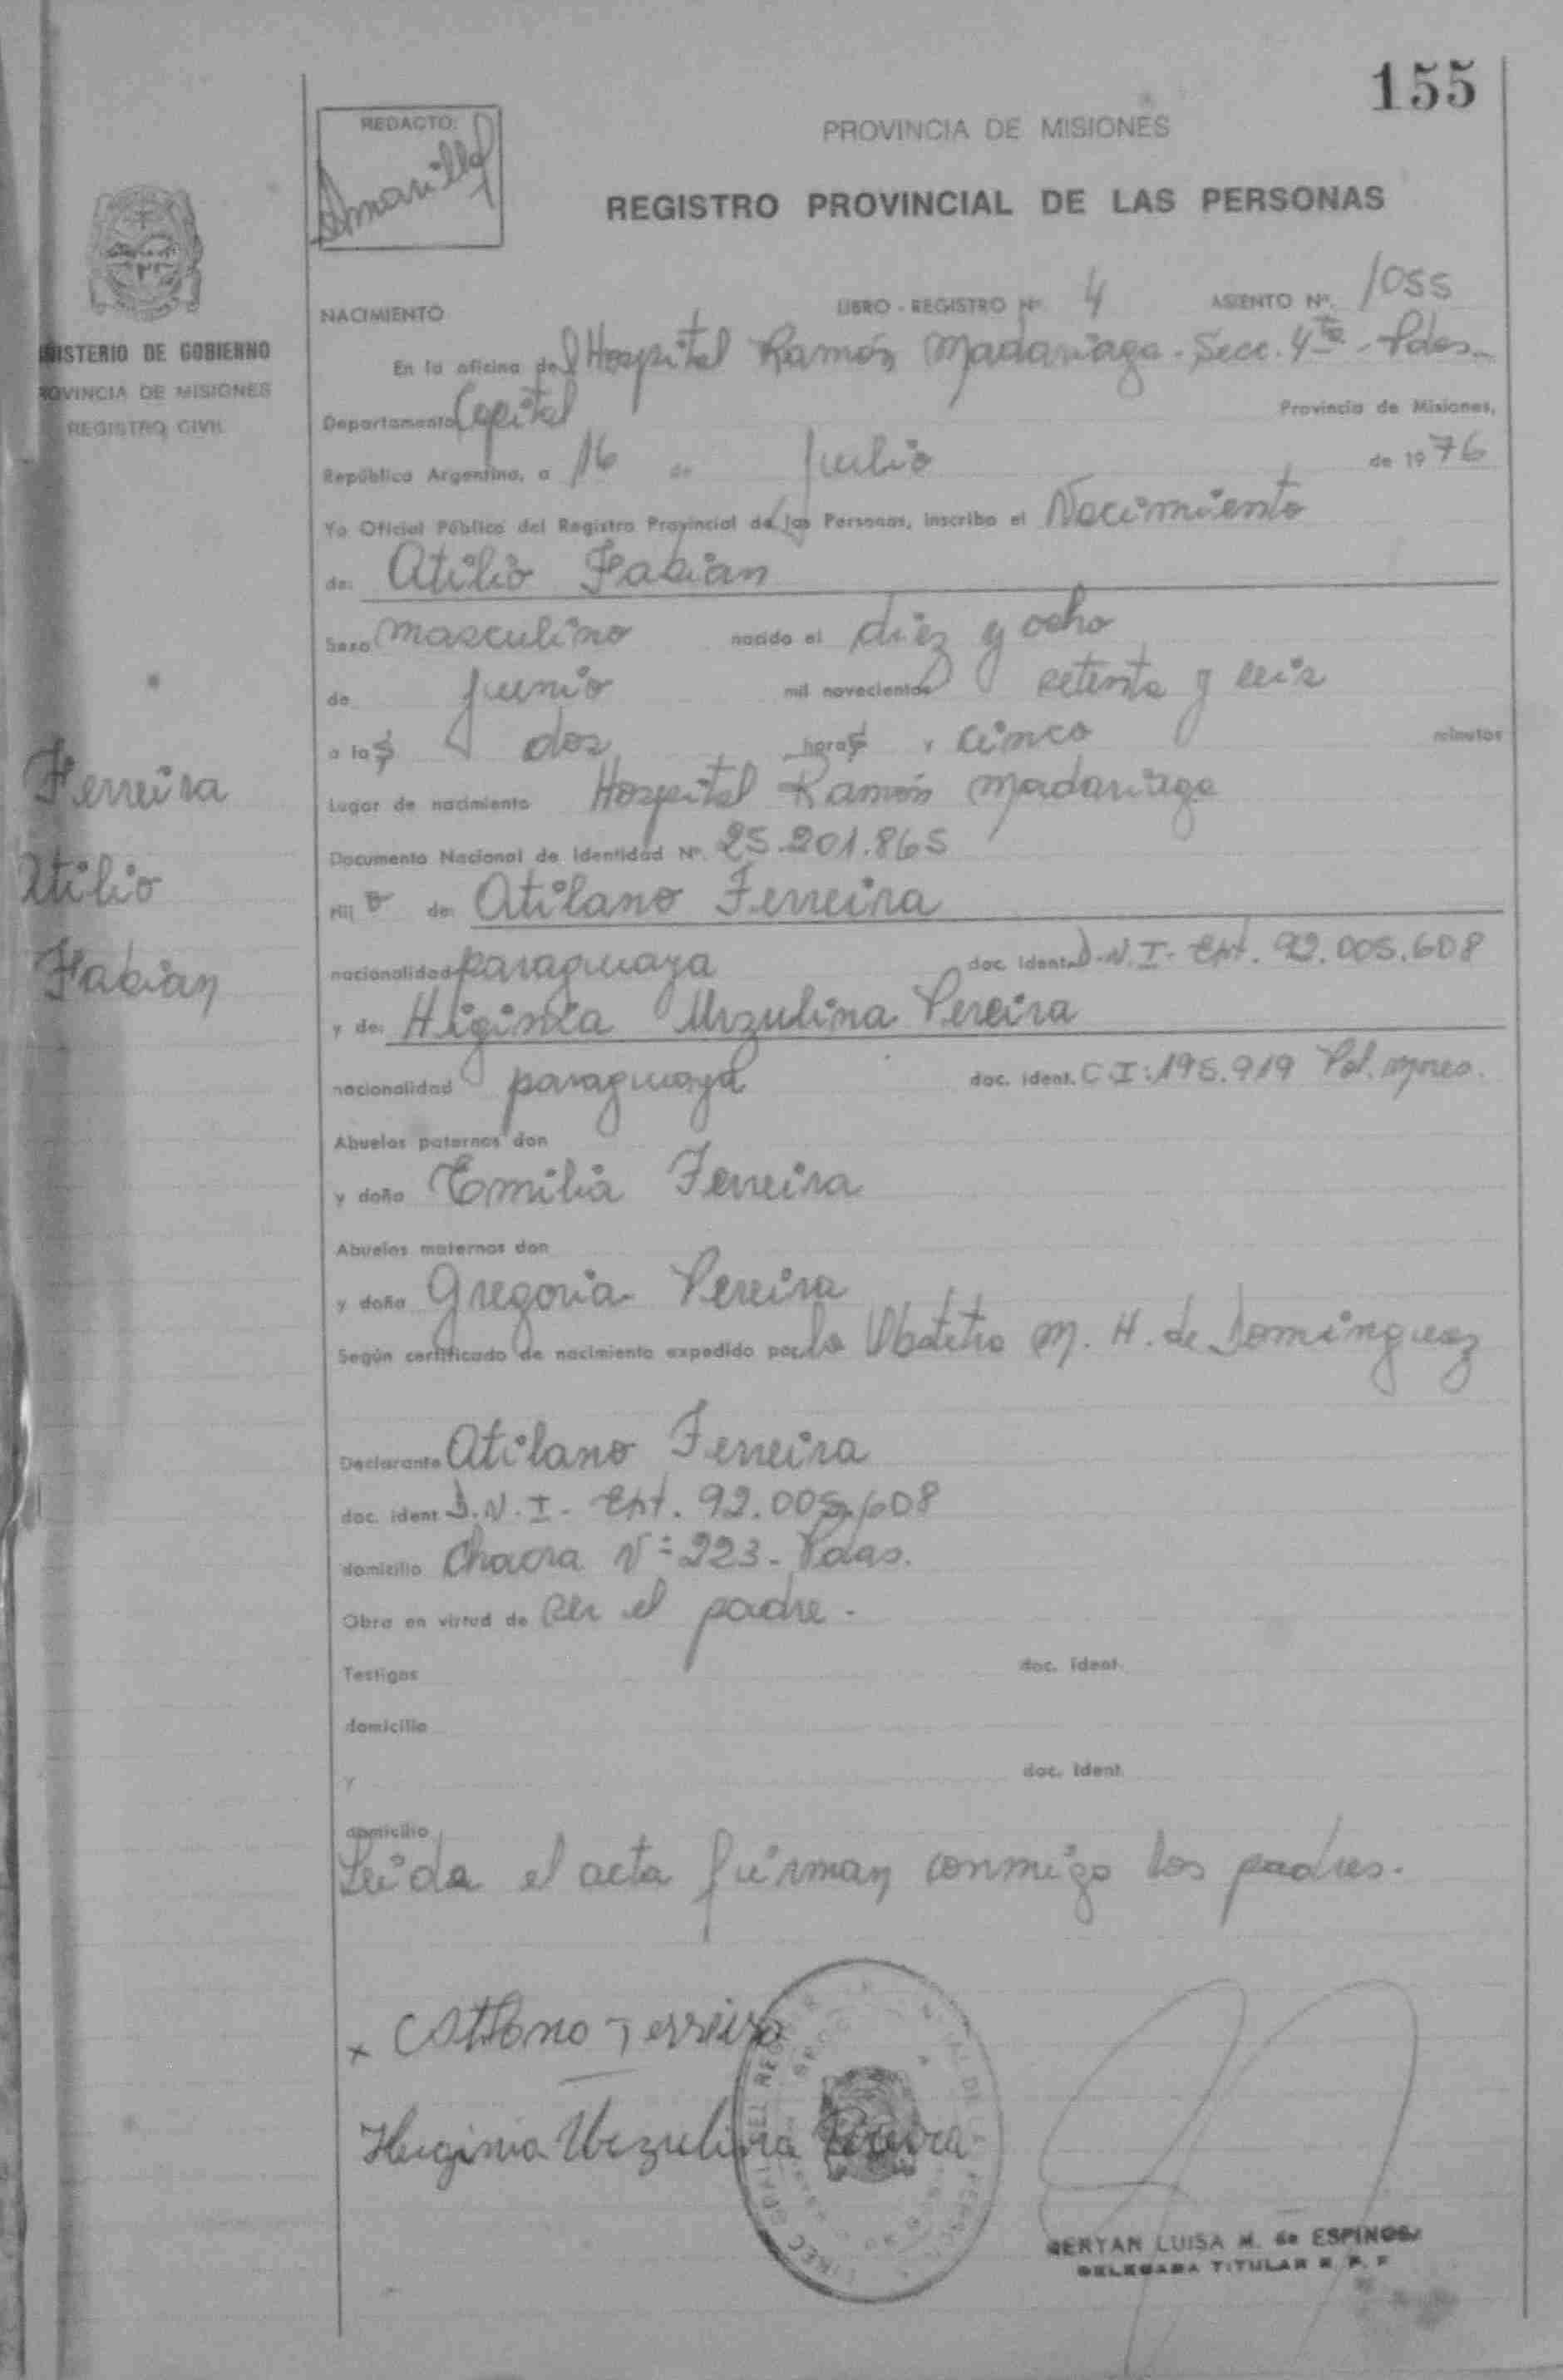 155
REDACTO:
Amarilla
PROVINCIA DE MISIONES
REGISTRO PROVINCIAL DE LAS PERSONAS
MINISTERIO DE GOBIERNO
PROVINCIA DE MISIONES
REGISTRO CIVIL
NACIMIENTO LIBRO - REGISTRO Nº 4 ASIENTO Nº. 1055
En la oficina del Hospital Ramón Madariaga - Secc. 4ta - Pdas.
Departamento Capital Provincia de Misiones,
República Argentina, a 16 de Julio de 1976
Yo Oficial Público del Registro Provincial de las Personas, inscribo el Nacimiento
de: Atilio Fabian
Sexo masculino nacido el diez y ocho
de junio mil novecientos setenta y seis
a las dos horas y cinco minutos
Lugar de nacimiento Hospital Ramón Madariaga
Documento Nacional de Identidad Nº. 25.201.865
Hijo de: Atilano Ferreira
nacionalidad paraguaya doc. ident. D.N.I- Ext. 92.005.608
y de: Higinia Urzulina Pereira
nacionalidad paraguaya doc. ident. C.I: 195.919 Pol. Mnes.
Abuelos paternos don
y doña Emilia Ferreira
Abuelos maternos don
y doña Gregoria Pereira
Según certificado de nacimiento expedido por la Obstetra M. H. de Dominguez
Declarante Atilano Ferreira
doc. ident D.N.I- Ext. 92.005.608
domicilio Chacra Nº 223- Pdas.
Obra en virtud de ser el padre.-
Testigos doc. ident.
domicilio
y doc. ident.
domicilio
Leida el acta firman conmigo los padres.
Ferreira
Atilio
Fabian
x Atilano Ferreira
Higinia Urzulina Pereira
LUISA M. de ESPINOSA
DELEGADA TITULAR R. P. P